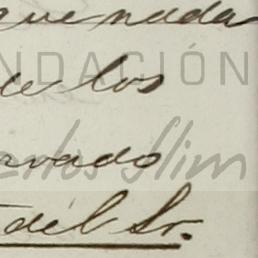 que nada
FUNDACIÓN
de los
Carlos Slim
rvado
del Sr.